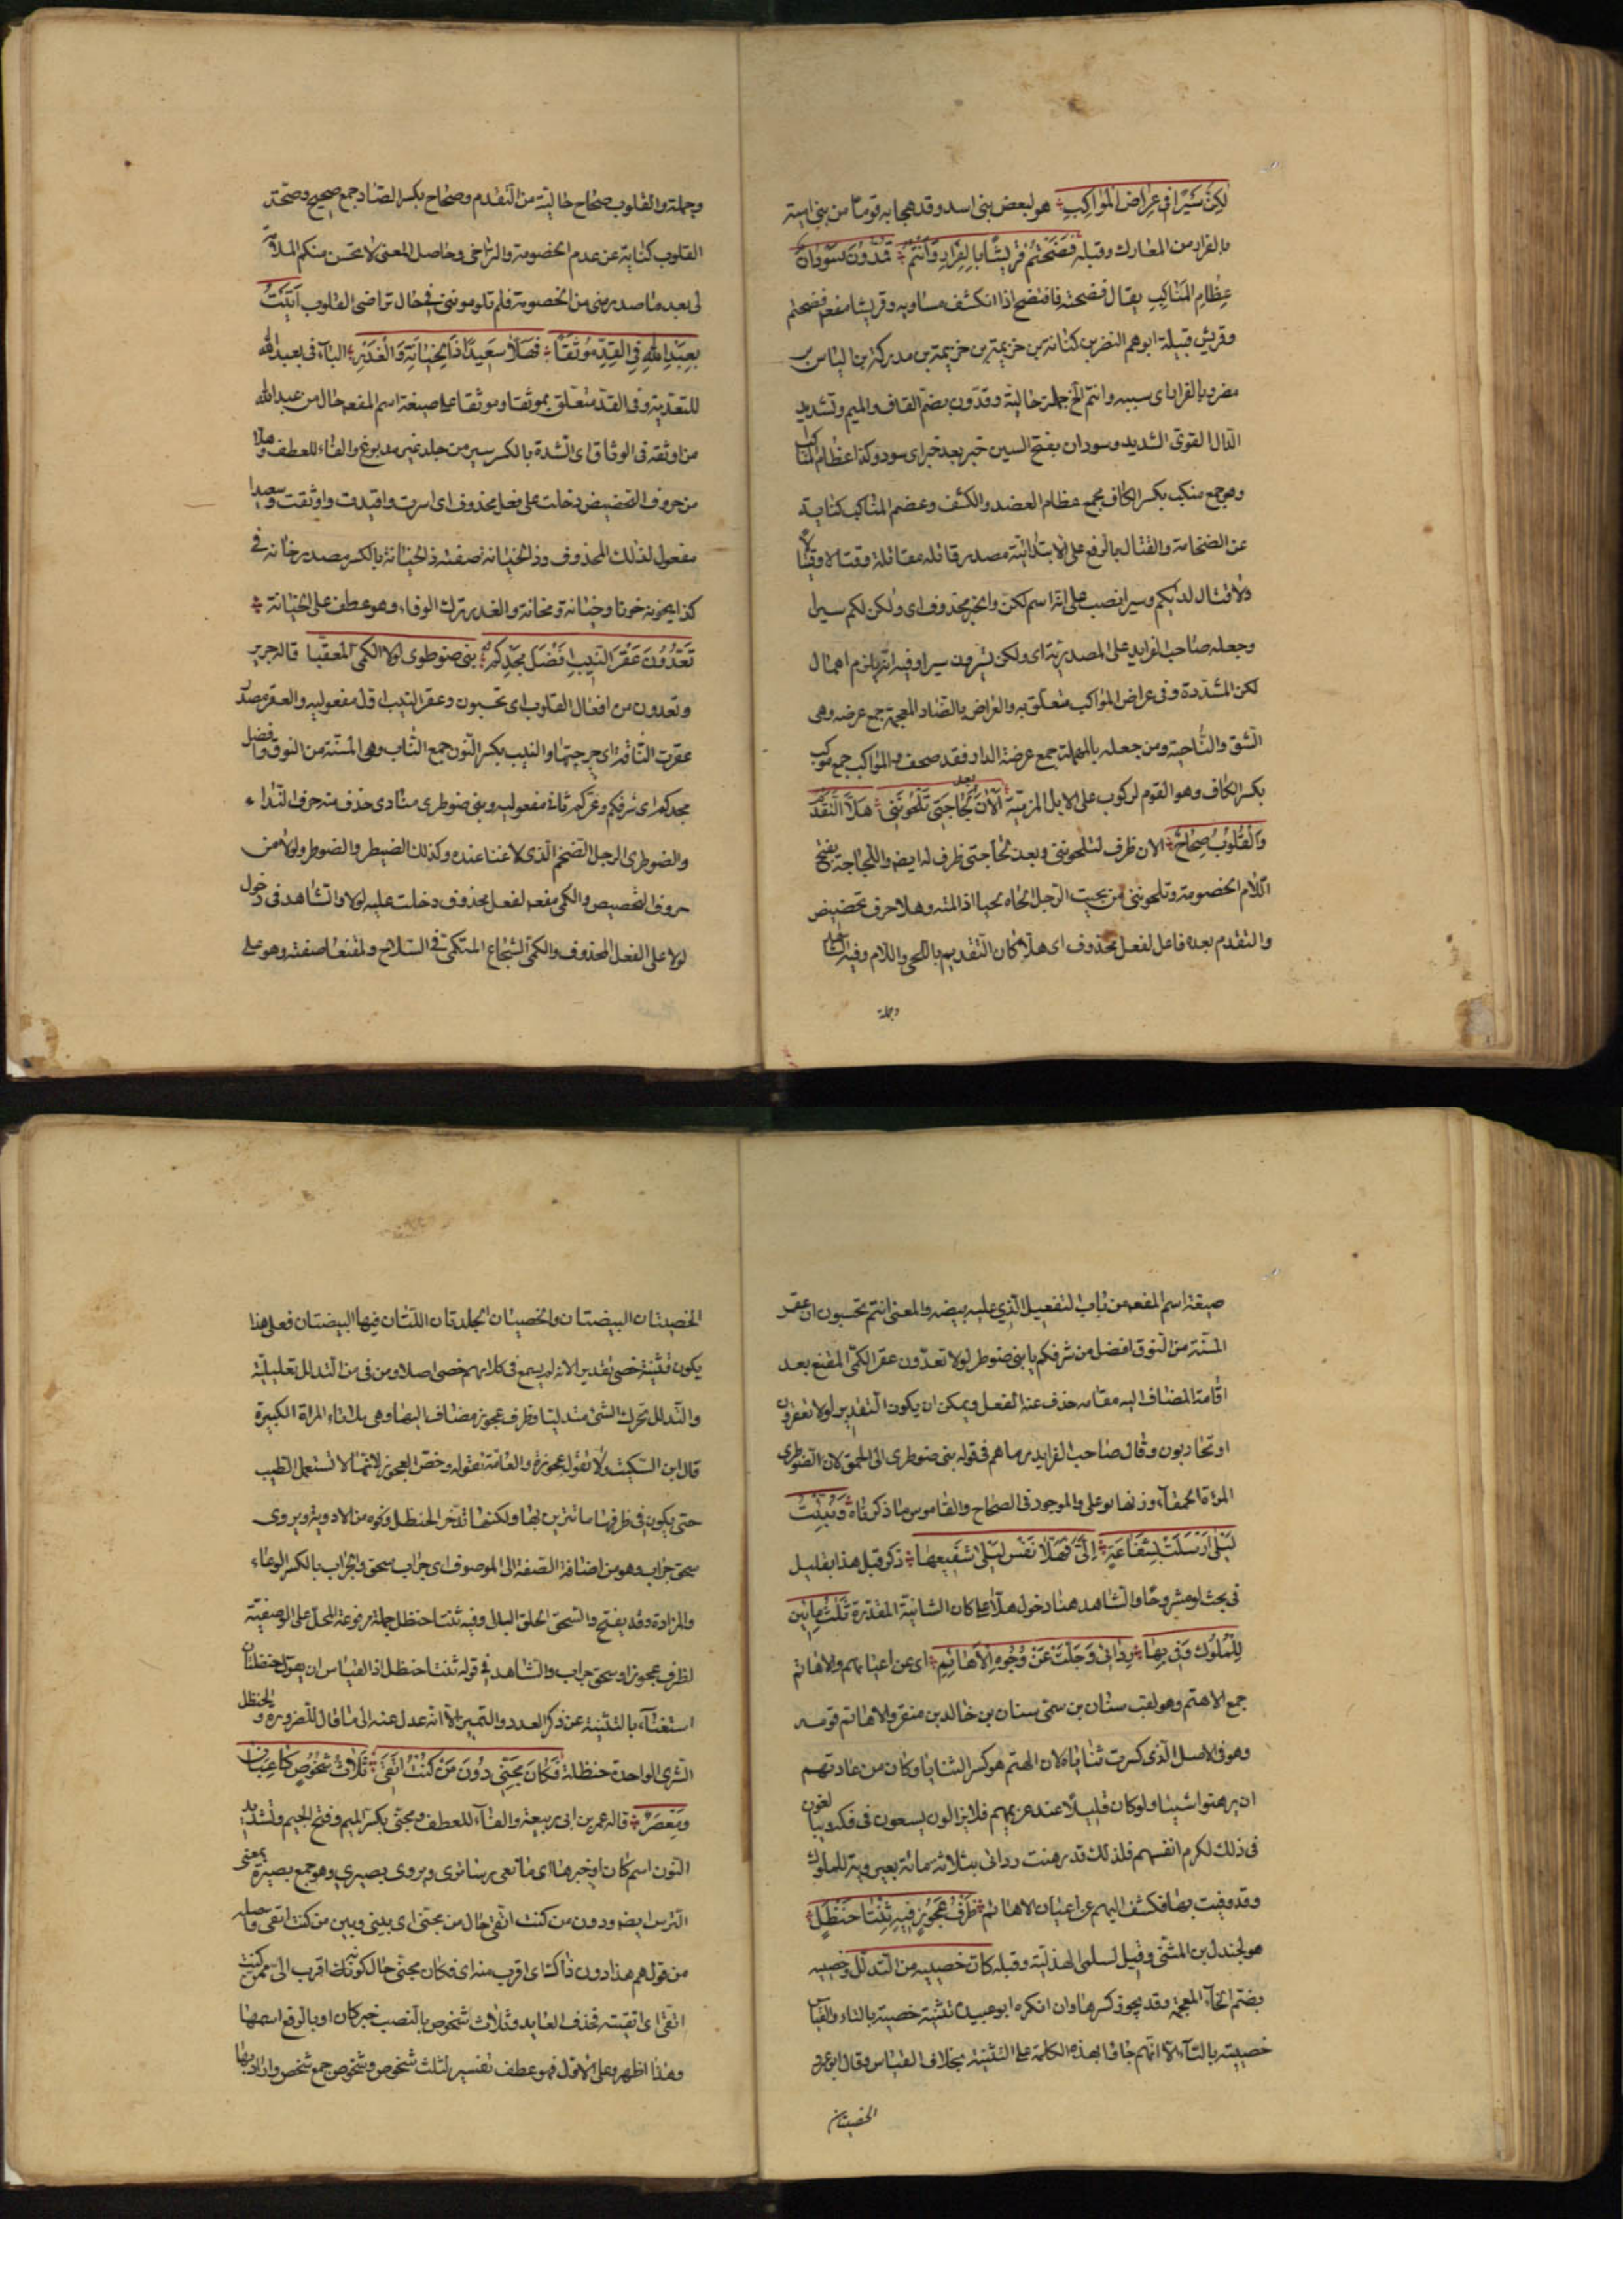 لكِنَّ سَيْرًا فى عِراضِ المَواكِبِ هو لبعض بنى اسد وقد هجا به قوما من بنى امية
بالفرار من المعارك وقبله فَضَحْتُم قُرَيْشًا بِالفِرارِ وَاَنْتُم قُمُدّونَ سَوْدانُ
عِظامِ المَناكِبِ يقال فضحته فافتضح اذا انكشف مساويه وقريشا مفعم فضحتم
وقريش قبيلة ابوهم النضر بن كنانة بن خزيمة بن مدركة بن الياس بن
مضر وبالفرار اى بسببه وانتم الخ جملة حالية وقمدّون بضم القاف والميم وتشديد
الدال القوى الشديد وسودان بفتح السين خبر بعد خبر اى سود وكذا عظام المناكب
وهو جمع منكب بكسر الكاف مجمع عظام العضد والكتف وعضم المناكب كناية
عن الضخامة والقتال بالرفع على الابتدائية مصدر قاتله مقاتلة وقتالا وقيتالا
ولا قتال لديكم وسيرا نصب على انه اسم لكن والخبر محذوف اى ولكن لكم سيرا
وجعله صاحب الفرايد على المصدرية اى ولكن تسيرون سيرا وفيه انه يلزم اهمال
لكن المشددة وفى عراض المواكب متعلق به والعراض بالضاد المعجمة جمع عرضه وهى
الشق والناحية ومن جعله بالمهملة جمع عرصة الدار فقد صحف والمواكب جمع موكب
بكسر الكاف وهو القوم لركوب على الابل المزينة اَلْآنَ بعد لَجاجَتى تَلْحونَنى هَلّا التَّقَدُّمُ
وَالْقُلُوبُ صِحاحُ الان ظرف لتلحوننى وبعد لجاجتى ظرف له ايضا واللجاجة بفتح
اللام الخصومة وتلحوننى من لحيت الرجل الحاه لحيا اذا لمته وهلا حرف تحضيض
والتقدم بعده فاعل لفعل محذوف اى هلا كان التقديم باللحى واللام وفيه الشاهد
وجملة
وجملة والقلوب صحاح حالية من التقدم وصحاح بكسر الصاد جمع صحيح وصحة
القلوب كناية عن عدم الخصومة والتراخى وحاصل المعنى لا يحسن منكم الملامة
لى بعد ما صدر منى من الخصومة فلم تلوموننى فى حال تراضى القلوب اَتَيْتُ
بِعَبْدِ اللهِ فِى القِدِّ مُوثَقًا فَهَلّا سَعيدًا ذَا الخِيانَةِ وَالْغَدْرِ الباء فى بعبد الله
للتعدية وفى القد متعلق بموثقا وموثقا على صيغة اسم المفعم حال من عبد الله
من اوثقه فى الوثاق اى الشدة بالكسر سير من جلد غير مدبوغ والفاء للعطف وهلا
من حروف التحضيض دخلت على فعل محذوف اى اسرت واقيدت واوثقت وسعيدا
مفعول لذلك المحذوف وذا الخيانة صفته ذ الخيانة بالكسر مصدر خانه فى
كذا يخونه خونا وخيانة ومخانة والغدر ترك الوفاء وهو عطف على الخيانة
تَعُدُّونَ عَقْرَ النّيبِ اَفْضَلَ مَجْدِكُم بنى ضوطرى لولا الكمى المقنعا قاله جرير
وتعدون من افعال القلوب اى تحسبون وعقر النيب اول مفعوليه والعقر مصدر
عقرت الناقة اى جرحتها والنيب بكسر النون جمع الناب وهى المسنة من النوق وافضل
مجدكم اى شرفكم وعزكم ثانى مفعوليه وبنى ضوطرى منادى حذف منه حرف النداء
والضوطرى الرجل الضخم الذى لا غناء عنده وكذلك الضيطر والضوطر ولولا من
حروف التخصيص والكمى مفعم لفعل محذوف دخلت عليه لولا والشاهد فى دخول
لولا على الفعل المحذوف والكمى الشجاع المتكمى فى السلاح والمقنعا صفته وهو على
صيغة اسم المفعم من باب التفعيل الذى عليه بيضه والمعنى انتم تحسبون ان عقر
المسنة من النوق افضل من شرفكم يا بنى ضوطر لولا تعدّون عقر الكمى المقنع بعد
اقامة المضاف اليه مقامه حذف عنه الفعل ويمكن ان يكون التقدير لولا تعقرون
او تحاربون وقال صاحب الفرايد رماهم فى قوله بنى ضوطرى الى الحمق لان الضوطرى
المرءة الحمقاء وزنها فوعلى والموجود فى الصحاح والقاموس ما ذكرناه وَنُبِّئْتُ
لَيْلى اَرْسَلَتْ بِشَفاعَةٍ اِلَىَّ فَهَلّا نَفْسُ لَيْلى شَفيعُها ذكر قبل هذا بقليل
فى بحث لو مشروحا والشاهد هنا دخول هلا على كان الشانية المقدرة ثَلثُ مِائينَ
لِلْمُلُوكِ وَفى بِها رِدائى وَجَلَّتْ عَنْ وُجُوهِ الْاَهاتِمِ اى عن اعيانهم والاهاتم
جمع الاهتم وهو لقب سنان بن سمى سنان بن خالد بن منقر والاهاتم قومه
وهو فى الاصل الذى كسرت ثناياه لان الهتم هو كسر الثنايا وكان من عادتهم
ان يرهنوا شيئا ولو كان قليلا عند غريمهم فلا يزالون يسعون فى فكه ويبالغون
فى ذلك لكرم انفسهم فلذلك قد رهنت ردائى بثلاثمائة بعير دية للملوك
وقد وفيت بها فكشف اللهم عن اعيان الاهاتم ظَرْفُ عَجُوزٍ فيهِ ثِنْتا حَنْظَلِ
هو لجندل بن المثنى وقيل لسلمى الهذلية وقبله كان خصييه من التدلل وخصييه
بضم الخاء المعجمة وقد يجوز كسرها وان انكره ابو عبيدة تثنية خصية بالتاء والقياس
خصيتيه بالتاء الا انهم جاؤا بهذه الكلمة على التثنية بخلاف القياس وقال ابو عمرو
الخصيتان
الخصيتان البيضتان والخصيان الجلدتان اللتان فيها البيضتان فعلى هذا
يكون تثنية خصى تقديرا لانه لم يسمع فى كلامهم خصى اصلا ومن فى من التدلل تعليلية
والتدلل تحرك الشئ متدليا وظرف عجوز مضاف اليها وهى بلا تاء المراة الكبيرة
قال ابن السكيت ولا تقول عجوزة والعامة تقوله وخص العجوز لانها لا تستعمل الطيب
حتى يكون فى ظرفها ما تتزين بها ولكنها تدخر الحنظل ونحوه من الادوية ويروى
سحق جراب وهو من اضافة الصفة الى الموصوف اى جراب سحق والجراب بالكسر الوعاء
والمزادة وقد يفتح والسحق الخلق البالى وفيه ثنتا حنظل جملة مرفوعة المحل على الوصفية
لظرف عجوز او سحق جراب والشاهد فى قوله ثنتا حنظل اذ القياس ان يقول حنظلتان
استغناء بالتثنية عن ذكر العدد والتمييز الا انه عدل عنه الى ما قال للضرورة والحنظل
الشرى الواحدة حنظلة فَكانَ مِجَنّى دُونَ مَنْ كُنْتُ اَتَّقى ثَلاثُ شُخُوصٍ كاعِبانِ
وَمُعْصِرُ قاله عمر بن ابى ربيعة والفاء للعطف ومجنى بكسر الميم وفتح الجيم وتشديد
النون اسم كان او خبرها اى مانعى وساترى ويروى بصيرى وهو جمع بصيرة بمعنى
الترس ايضا ودون من كنت اتقى حال من مجنى اى بينى وبين من كنت اتقى وحاصله
من قولهم هذا دون ذاك اى اقرب منه اى فكان مجنى حالكونهن اقرب الى ممن كنت
اتقى اى اتقيته فحذف العايد وثلاث شخوص بالنصب خبر كان او بالرفع اسمها
وهذا اظهر وعلى الاول فهو عطف تفسير لثلث شخوص وشخوص جمع شخص واراد بها